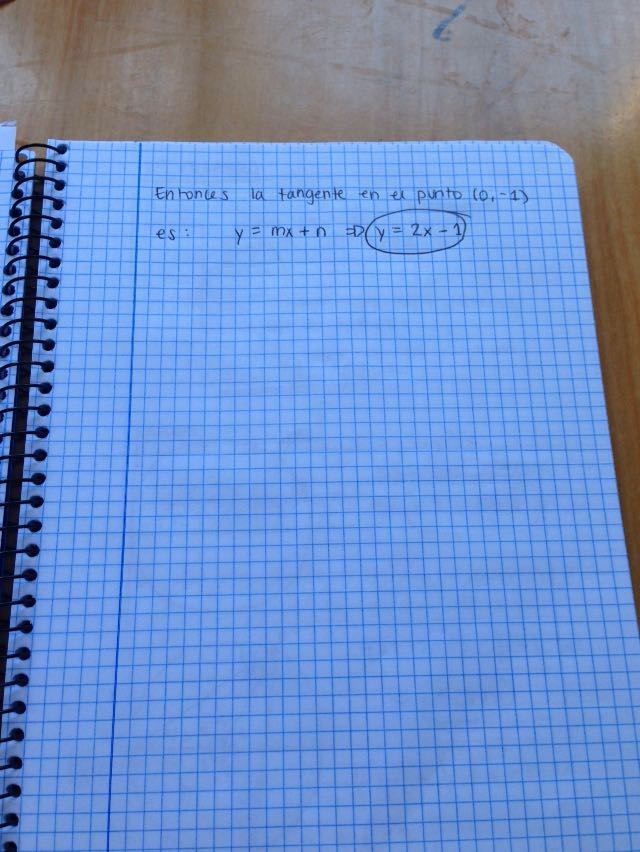 Entonces la tangente en el punto (0,-1)
es: y = mx + n ⇒ y = 2x - 1